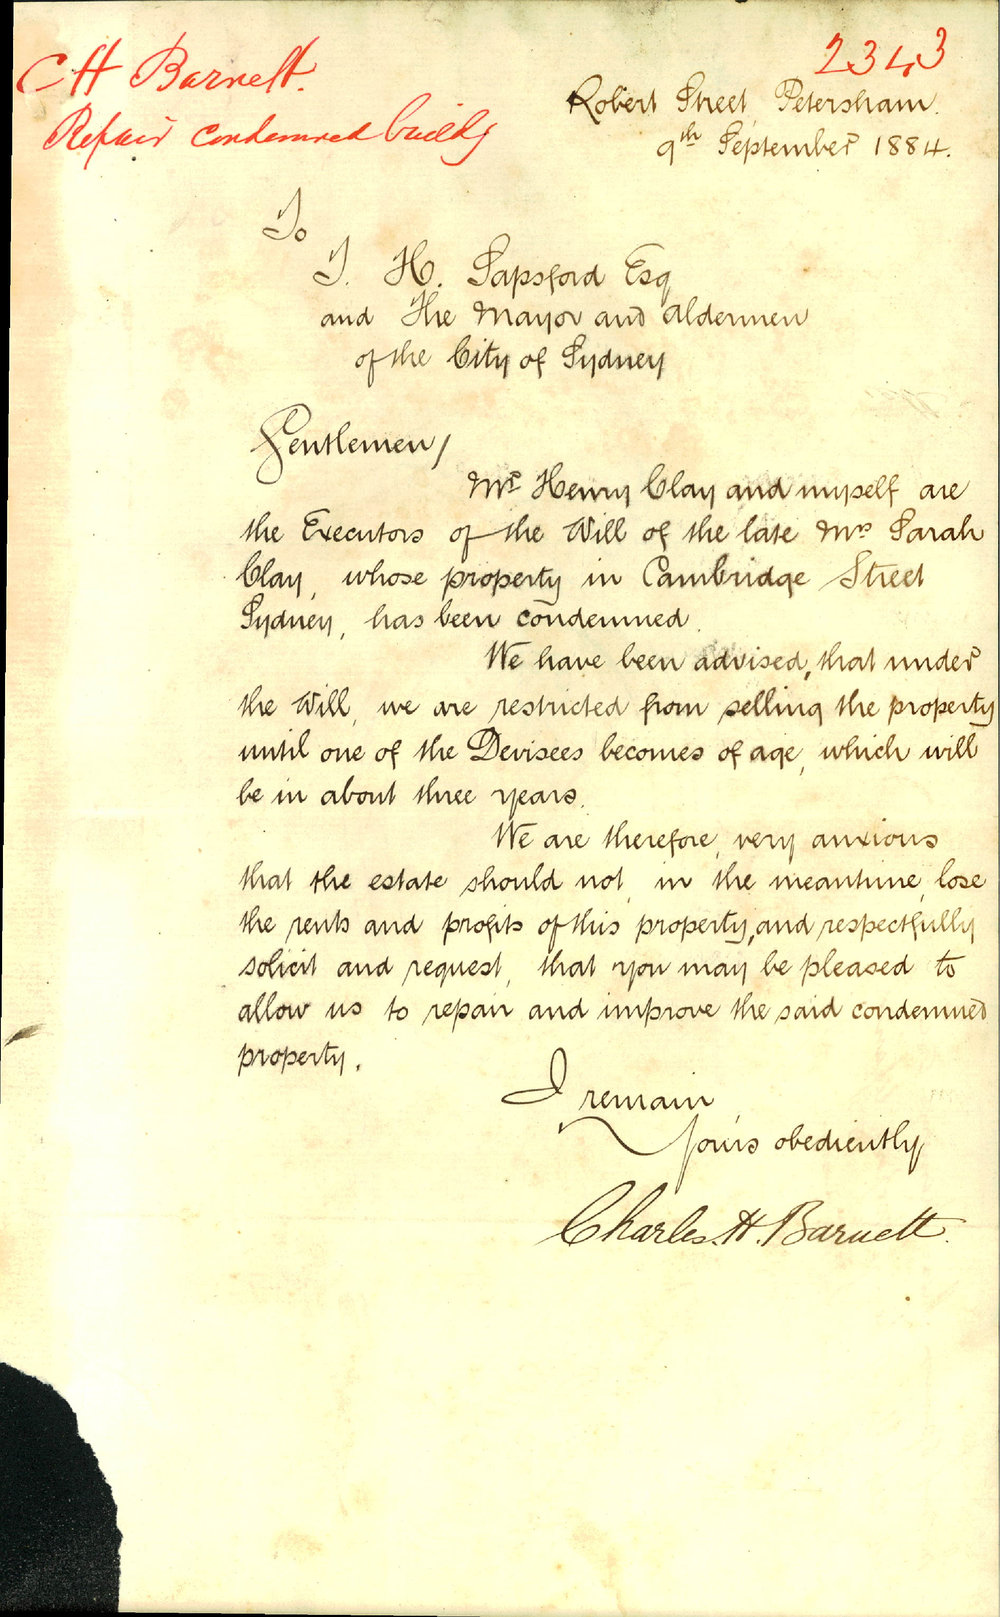 C H Barnett.
Repair condemned buildg
2343
Robert Street, Petersham.
9th September 1884.
To
J. H. Sapsford Esq
and The Mayor and Aldermen
of the City of Sydney
Gentlemen,
Mr Henry Clay and myself are
the Executors of the Will of the late Mrs Sarah
Clay, whose property in Cambridge Street
Sydney, has been condemned.
We have been advised, that under
the Will, we are restricted from selling the property
until one of the Devisees becomes of age, which will
be in about three years.
We are therefore, very anxious
that the estate should not, in the meantime, lose
the rents and profits of this property, and respectfully
solicit and request, that you may be pleased to
allow us to repair and improve the said condemned
property.
I remain,
Yours obediently
Charles H. Barnett.